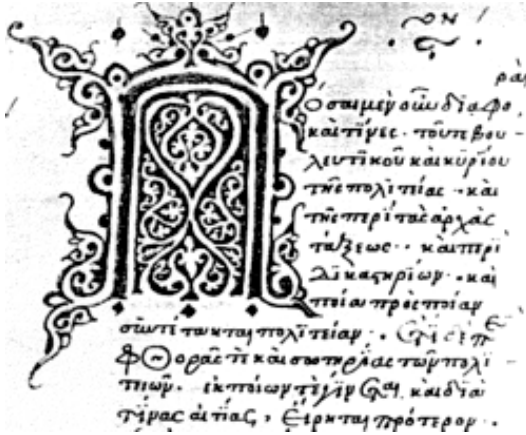 ον
ραὶ
Πόσαι μὲν οὖν διαφο
καὶ τίνες · τοῦ τε βου -
λευτικοῦ καὶ κυρίου
τῆς πολιτείας · καὶ
τῆς περὶ τὰς ἀρχὰς
τάξεως · καὶ περὶ
δικαστηρίων · καὶ
ποία πρὸς ποίαν
συντέτακται πολιτείαν ·
φθορᾶς τὲ καὶ σωτηρίας τῶν πολι -
τειῶν · ἐκ ποίων τὲ καὶ διὰ
τίνας αἰτίας, εἴρηται πρότερον ·